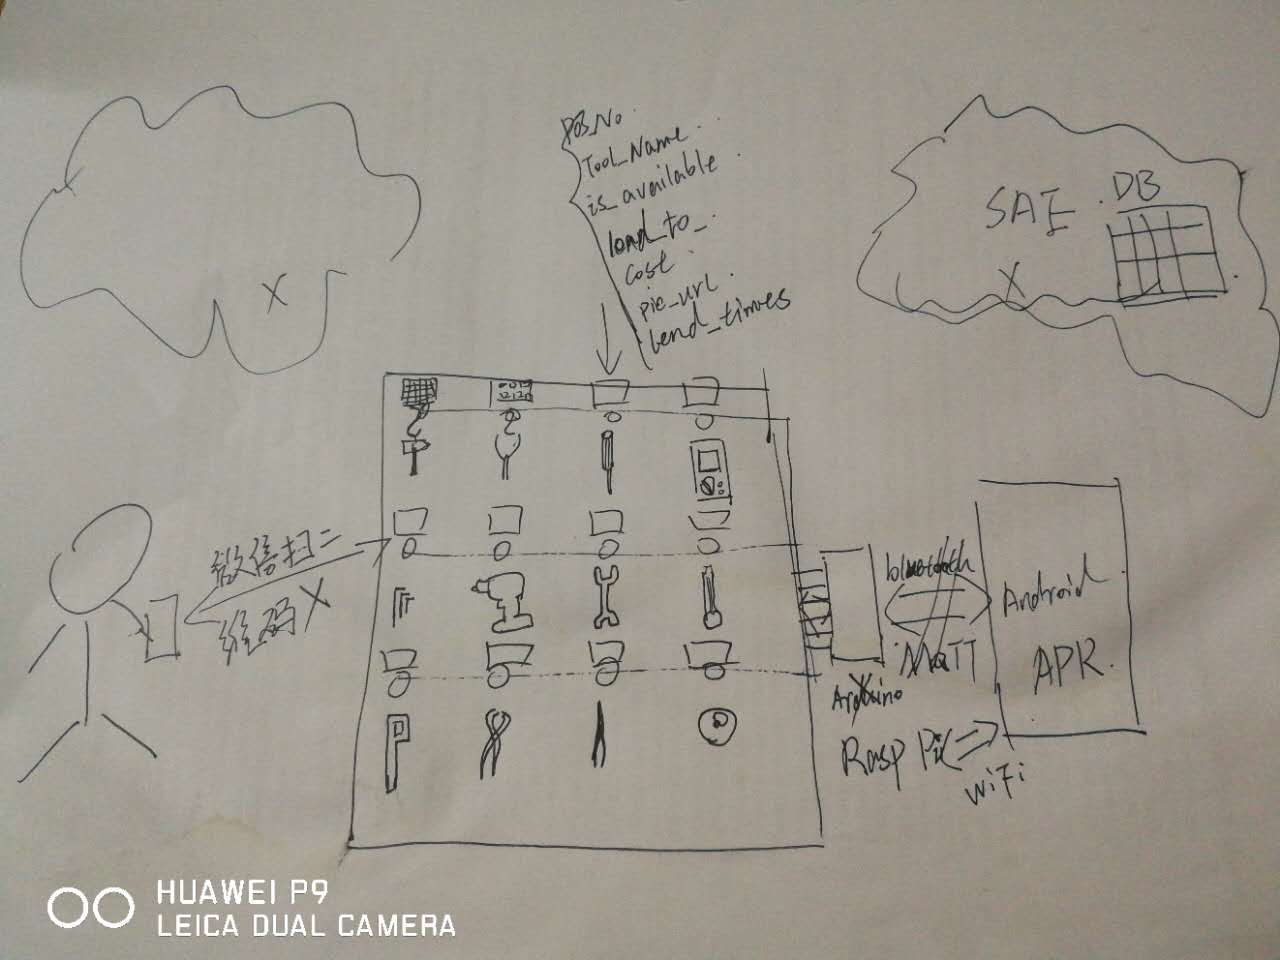 DB_No.
Tool_Name
is_available
lend_to_
cost
pic_url
lend_times
SAE
DB
X
X
微信扫二
维码X
bluetooth
MQTT
Android
APK
Arduino
Rasp Pi
WiFi
HUAWEI P9
LEICA DUAL CAMERA